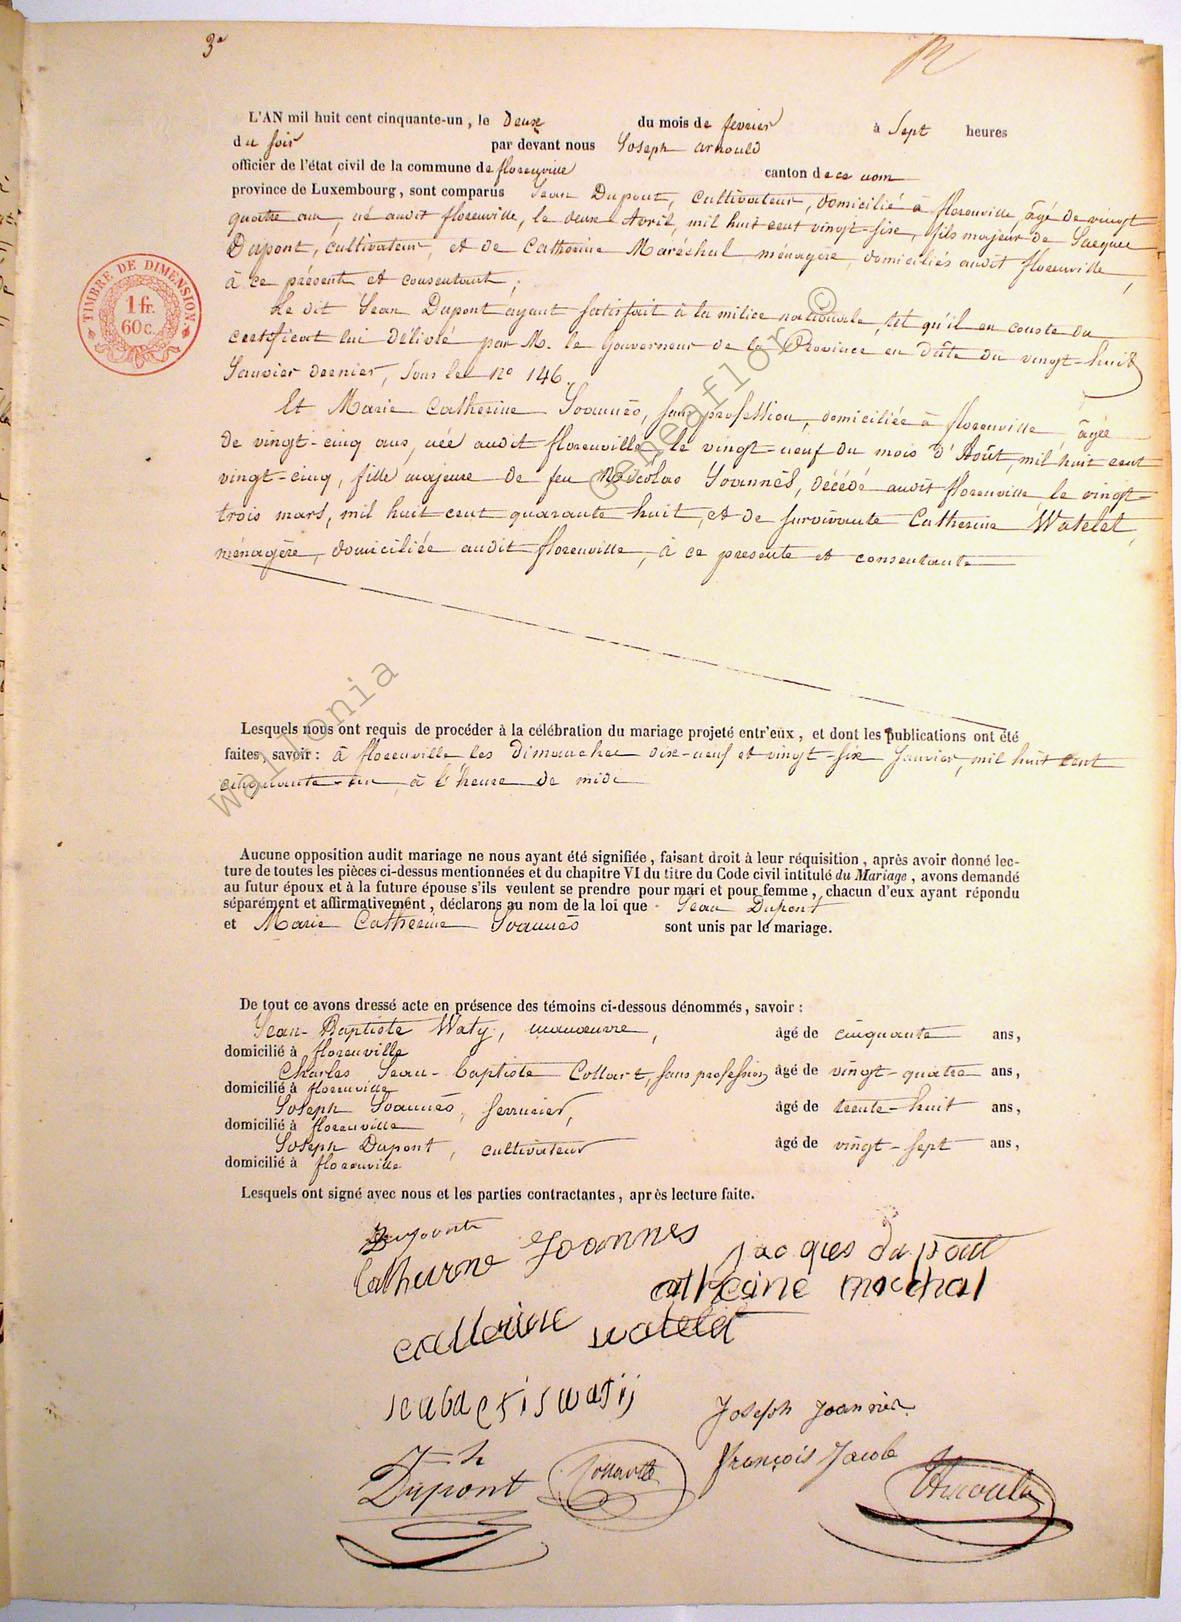 3e
L'AN mil huit cent cinquante-un, le deux du mois de fevrier à sept heures
du soir par devant nous Joseph Arnould
officier de l'état civil de la commune de florenville canton de ce nom
province de Luxembourg, sont comparus Jean Dupont, cultivateur, domicilié à florenville, âgé de vingt
quatre ans, né audit florenville, le deux Avril, mil huit cent vingt-six, fils majeur de Jacques
Dupont, cultivateur, et de Catherine Maréchal ménagère, domiciliés audit florenville,
à ce présent et consentant;
Le dit Jean Dupont ayant satisfait à la milice nationale, tel qu'il en conste du
certificat lui délivré par M. le Gouverneur de la Province en date du vingt-huit
Janvier dernier, sous le no 146.
Et Marie Catherine Joannès, sans profession, domiciliée à florenville, âgée
de vingt-cinq ans, née audit florenville le vingt-neuf du mois d'Août, mil huit cent
vingt-cinq, fille majeure de feu Nicolas Joannès, décédé audit florenville le vingt-
trois mars, mil huit cent quarante huit, et de survivante Catherine Watelet,
ménagère, domiciliée audit florenville, à ce presente et consentante
Lesquels nous ont requis de procéder à la célébration du mariage projeté entr'eux, et dont les publications ont été
faites, savoir: à florenville les dimanches dix-neuf et vingt-six Janvier, mil huit cent
cinquante-un, à l'heure de midi
Aucune opposition audit mariage ne nous ayant été signifiée, faisant droit à leur réquisition, après avoir donné lec-
ture de toutes les pièces ci-dessus mentionnées et du chapitre VI du titre du Code civil intitulé du Mariage, avons demandé
au futur époux et à la future épouse s'ils veulent se prendre pour mari et pour femme, chacun d'eux ayant répondu
séparément et affirmativement, déclarons au nom de la loi que Jean Dupont
et Marie Catherine Joannès sont unis par le mariage.
De tout ce avons dressé acte en présence des témoins ci-dessous dénommés, savoir:
Jean-Baptiste Waty, manœuvre, âgé de cinquante ans,
domicilié à florenville
Charles Jean-baptiste Collart, sans profession, âgé de vingt-quatre ans,
domicilié à florenville
Joseph Joannès, serrurier, âgé de trente-huit ans,
domicilié à florenville
Joseph Dupont, cultivateur âgé de vingt-sept ans,
domicilié à florenville
Lesquels ont signé avec nous et les parties contractantes, après lecture faite.
Catherine Joannes
Jacques dupont
Catherine watelet
Joseph Joannès
Dupont
François Jacob
Arnould
TIMBRE DE DIMENSION
1 fr.
60 c.
wallonia Geneaflor ©